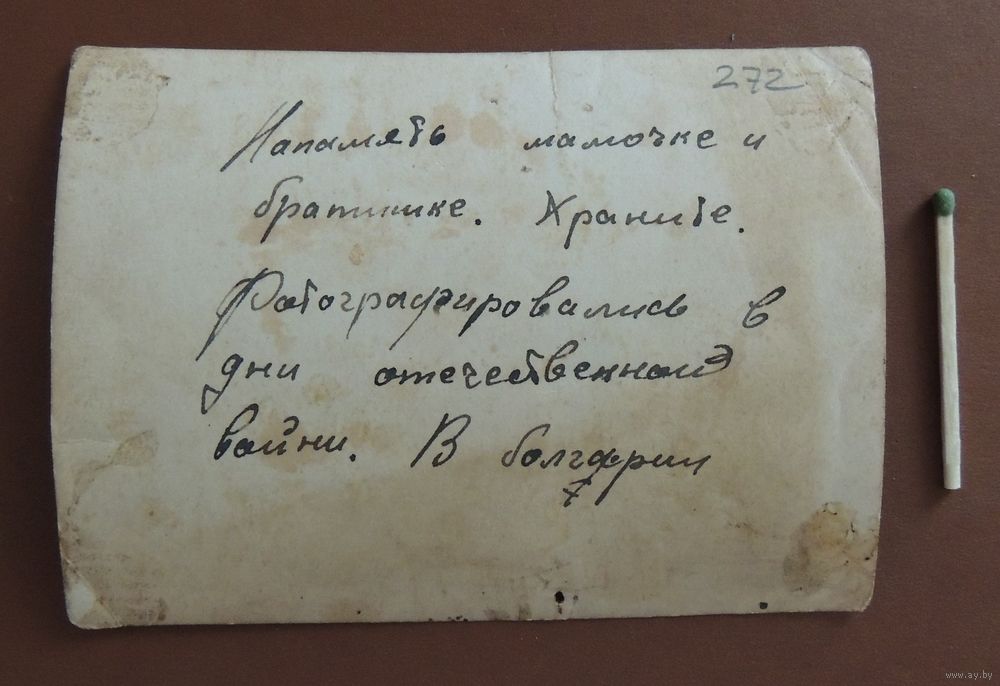 272
Напамять мамочке и
братишке. Храните.
Фотографировались в
дни отечественной
войни. В болгарии
www.ay.by